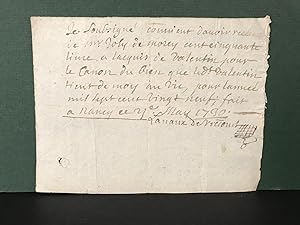 Je Soubsigné convient davoir receu
de Mr Joly de Morey cent cinquante
livre, a lacquit de Valentin pour
le Canon du bien que ledt Valentin
tient de moy pour lannée
mil sept cent vingt neuf fait
a Nancy ce May 1730
de